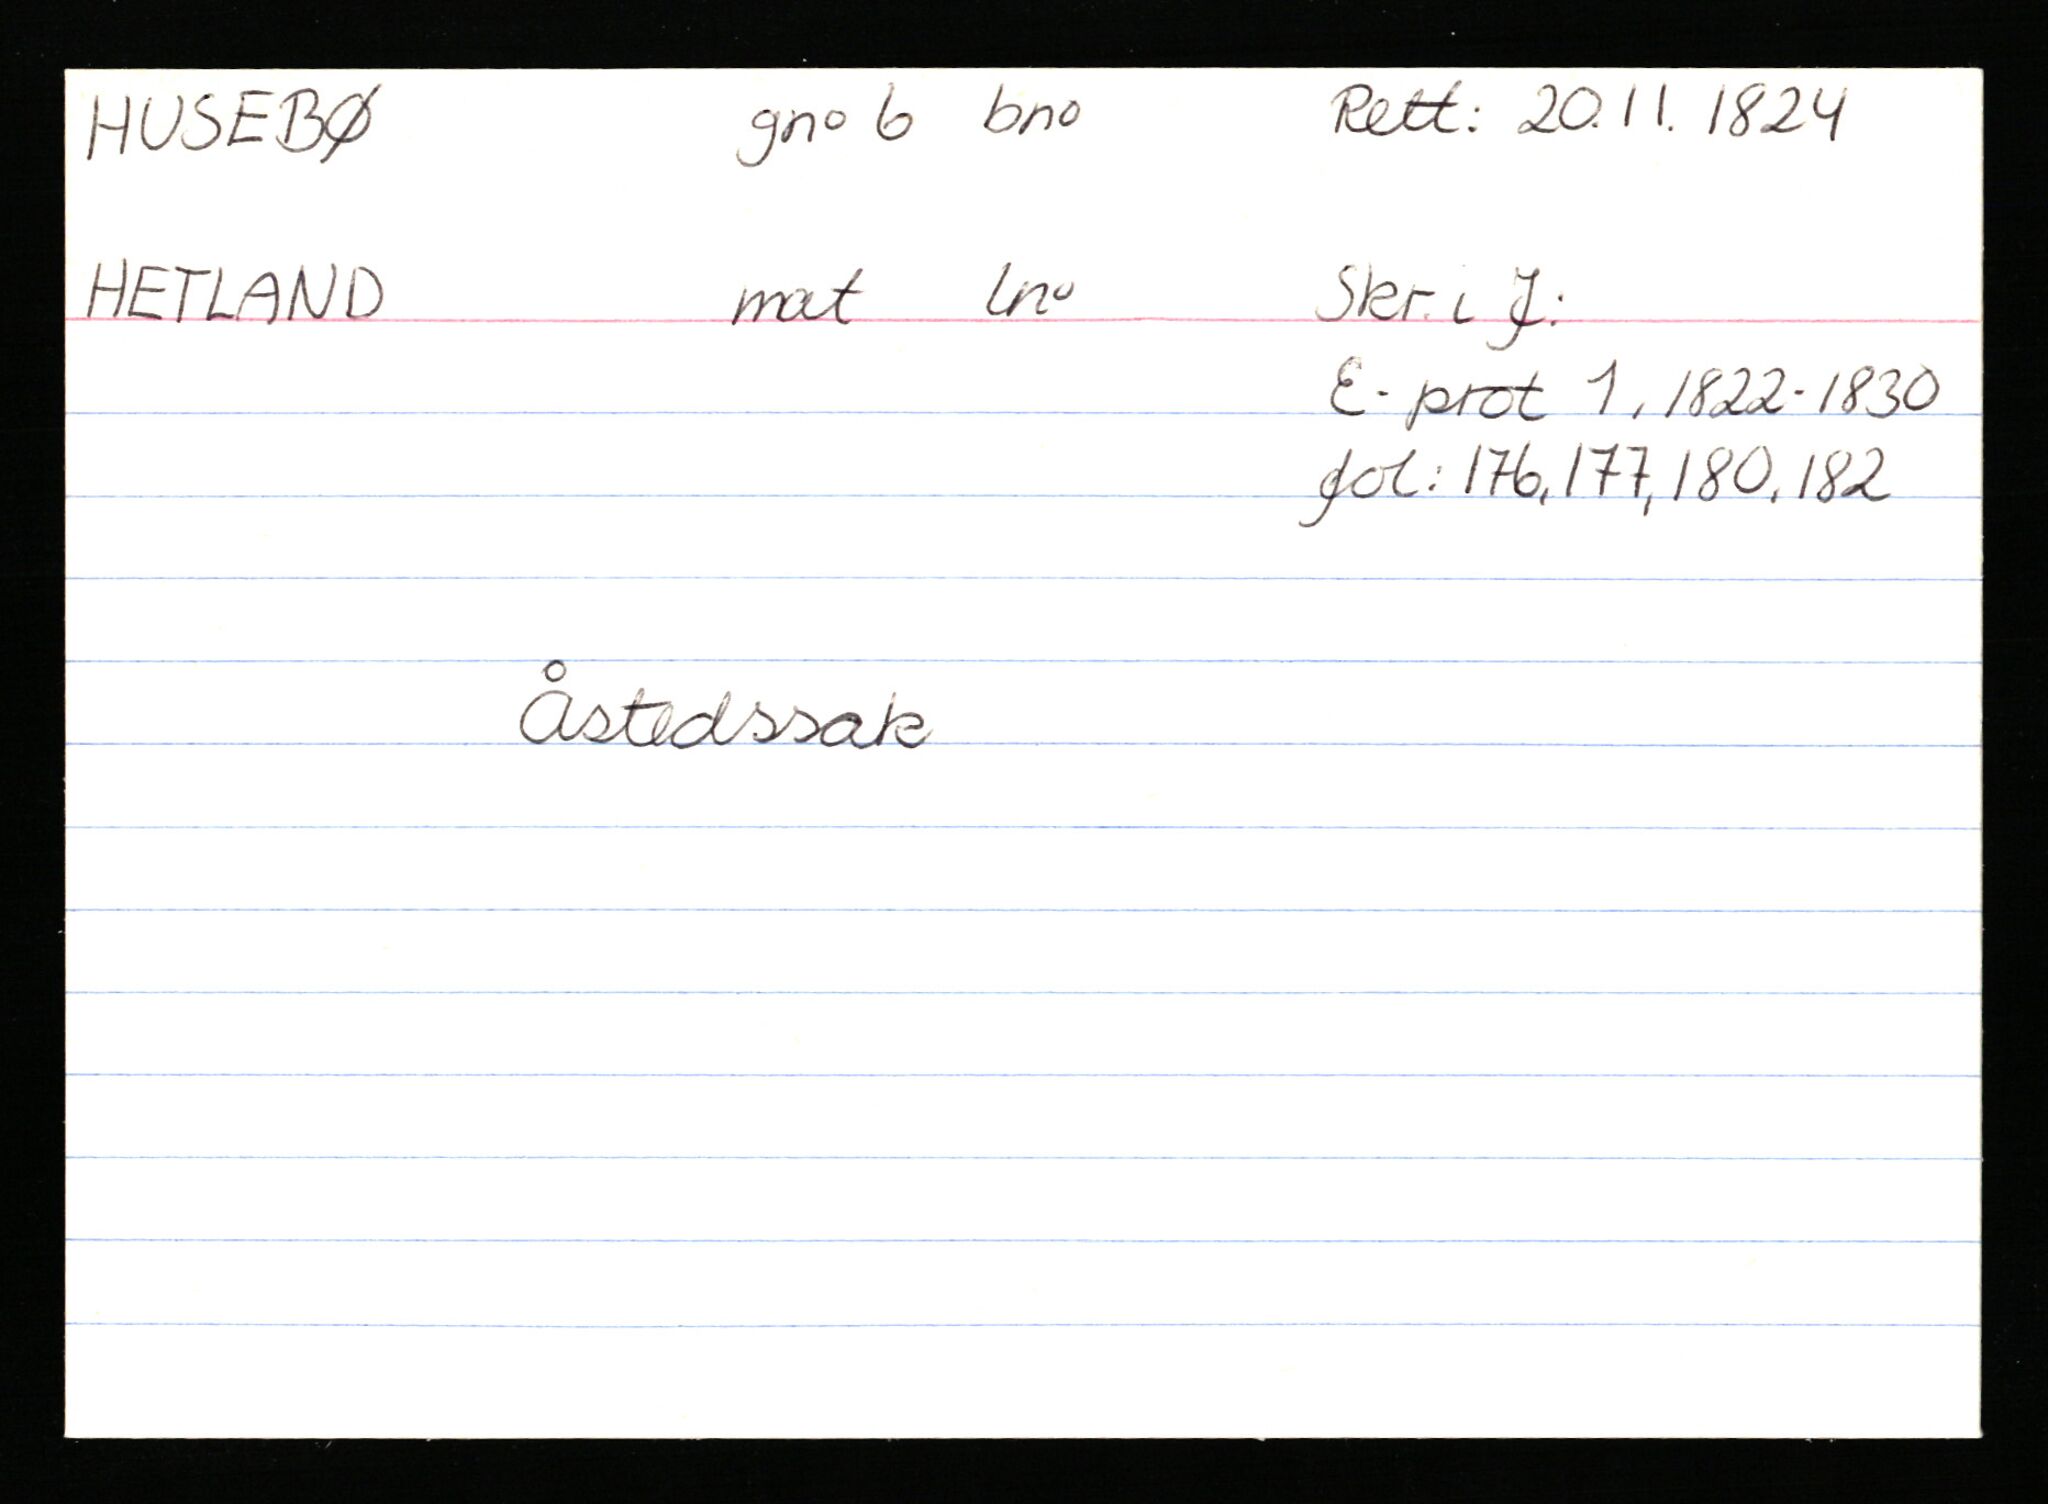 HUSEBØ gno 6 bno Rett: 20.11.1824
HETLAND mat lno Skr. i J:
E-prot 1, 1822-1830
fol: 176, 177, 180, 182
Åstedssak